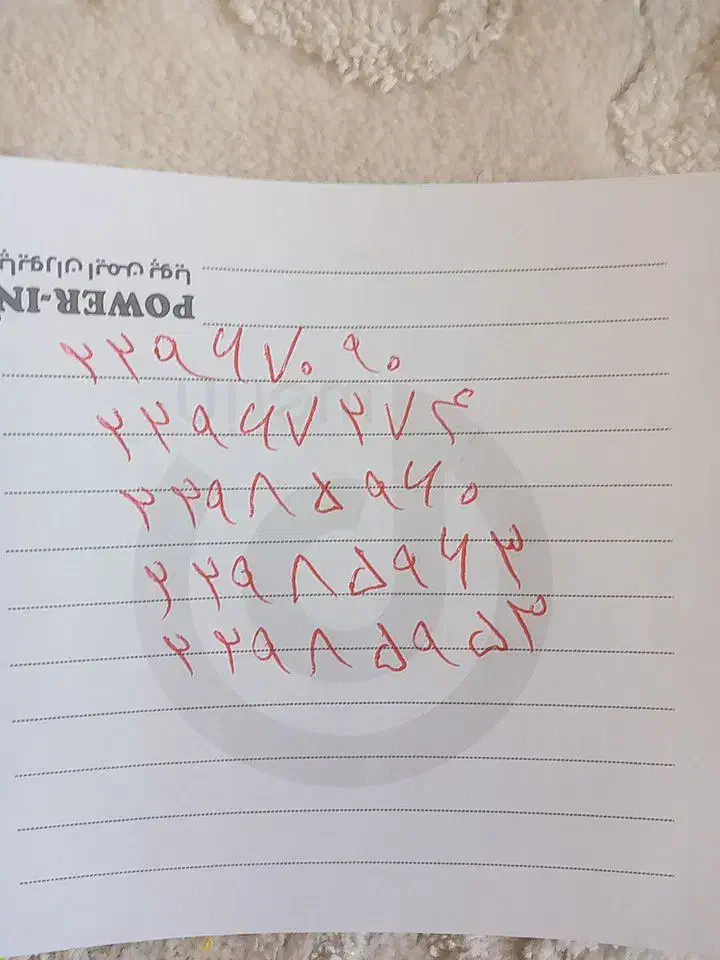 POWER-IN
۲۲۹۶۷۰۹۰
۲۲۹۶۷۲۷۴
۲۲۹۸۵۹۶۰
۲۲۹۸۵۹۶۳
۲۲۹۸۵۹۵۳